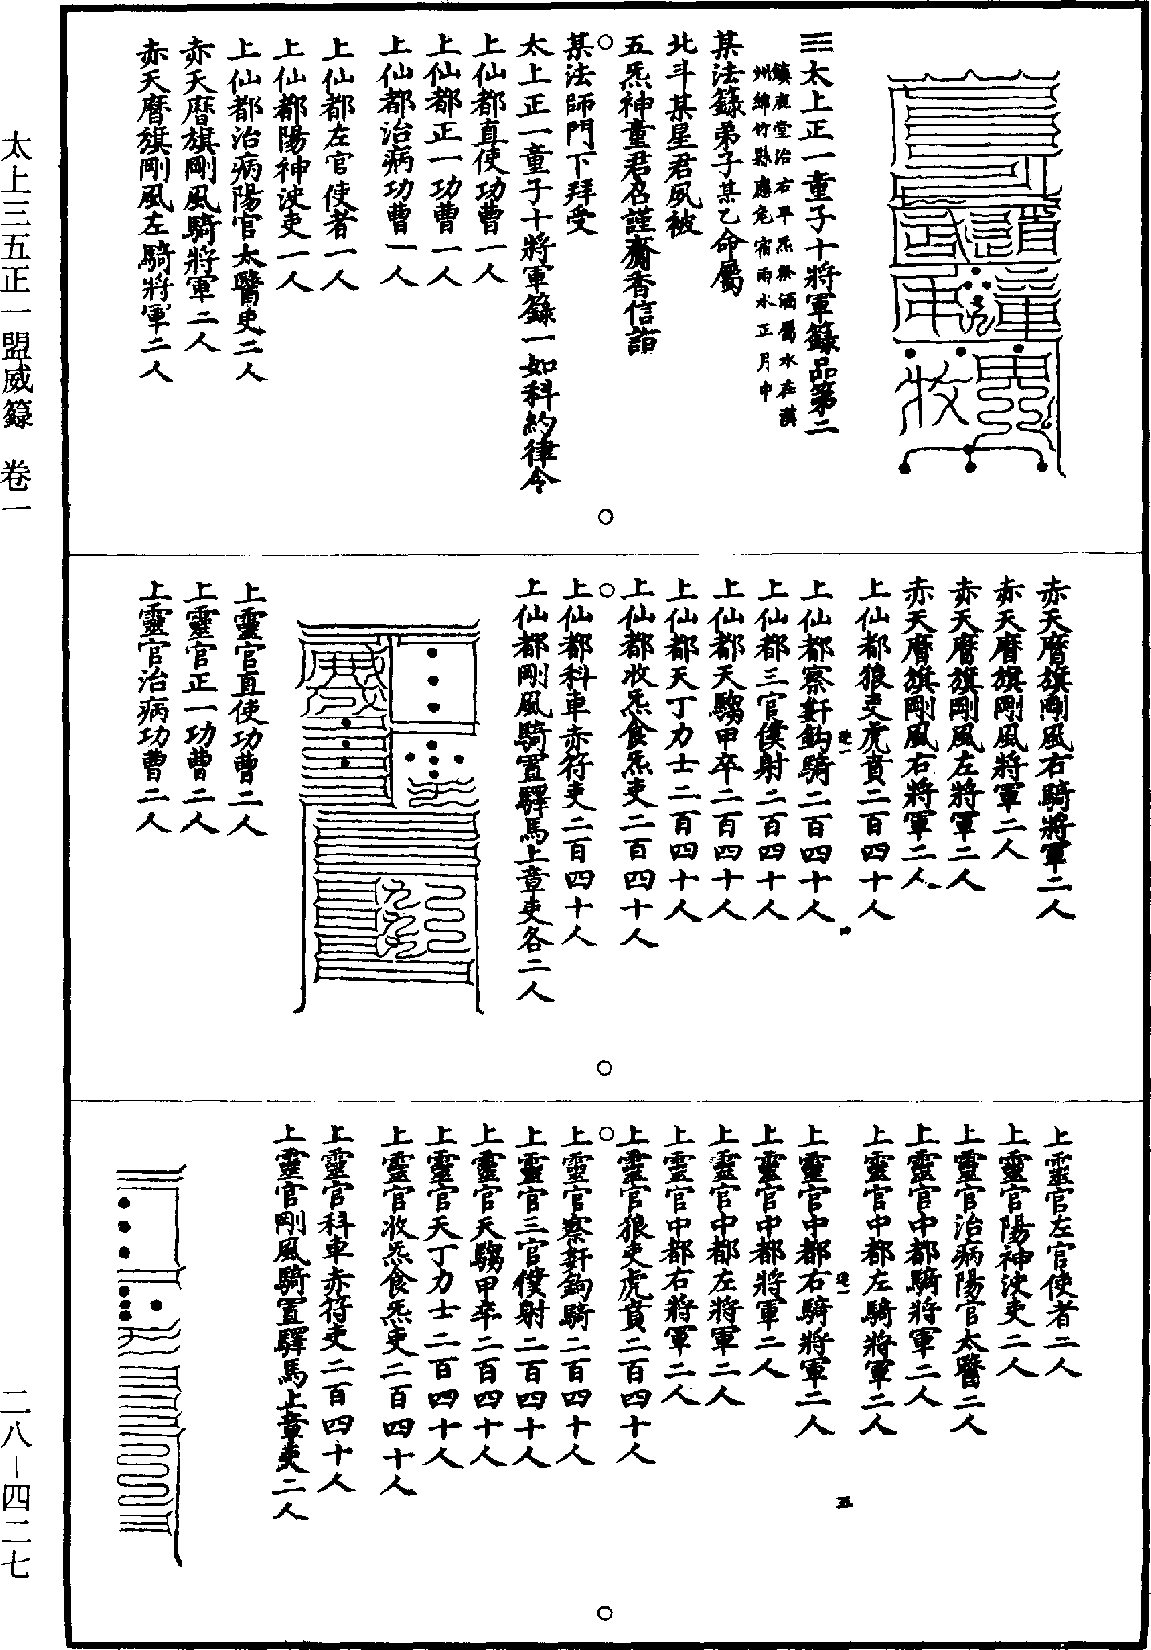 太上三五正一盟威籙　卷一
二八－四二七
太上正一童子十將軍籙品第二
鎮鹿堂治右平炁係酒屬水在漢
州綿竹縣應危宿雨水正月中
某法籙弟子某乙命屬
北斗某星君夙被
五炁神童君召謹齎香信詣
某法師門下拜受
太上正一童子十將軍籙一如科約律令
上仙都直使功曹一人
上仙都正一功曹一人
上仙都治病功曹一人
上仙都左官使者一人
上仙都陽神決吏一人
上仙都治病陽官太醫吏二人
赤天曆旗剛風騎將軍二人
赤天曆旗剛風左騎將軍二人
赤天曆旗剛風右騎將軍二人
赤天曆旗剛風將軍二人
赤天曆旗剛風左將軍二人
赤天曆旗剛風右將軍二人
上仙都狼吏虎賁二百四十人
上仙都察奸鉤騎二百四十人
上仙都三官僕射二百四十人
上仙都天騶甲卒二百四十人
上仙都天丁力士二百四十人
上仙都收炁食炁吏二百四十人
上仙都科車赤符吏二百四十人
上仙都剛風騎置驛馬上章吏各二人
上靈官直使功曹二人
上靈官正一功曹二人
上靈官治病功曹二人
上靈官左官使者二人
上靈官陽神決吏二人
上靈官治病陽官太醫二人
上靈官中都騎將軍二人
上靈官中都左騎將軍二人
上靈官中都右騎將軍二人
上靈官中都將軍二人
上靈官中都左將軍二人
上靈官中都右將軍二人
上靈官狼吏虎賁二百四十人
上靈官察奸鉤騎二百四十人
上靈官三官僕射二百四十人
上靈官天騶甲卒二百四十人
上靈官天丁力士二百四十人
上靈官收炁食炁吏二百四十人
上靈官科車赤符吏二百四十人
上靈官剛風騎置驛馬上章吏二人